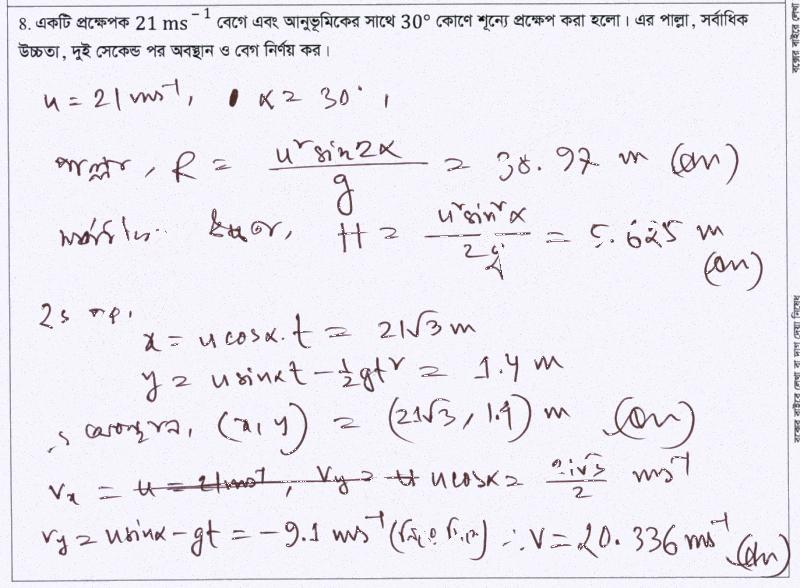 8. একটি প্রক্ষেপক 21 ms⁻¹ বেগে এবং আনুভূমিকের সাথে 30° কোণে শূন্যে প্রক্ষেপ করা হলো। এর পাল্লা, সর্বাধিক
উচ্চতা, দুই সেকেন্ড পর অবস্থান ও বেগ নির্ণয় কর।
u = 21 ms⁻¹, α = 30°,
পাল্লা, R = u² sin2α / g = 38.97 m (Ans)
H = u² sin² α / 2g = 5.625 m
(Ans)
2s পর,
x = u cosα. t = 21√3 m
y = u sinαt − ½gt² = 1.4 m
(x, y) = (21√3, 1.4) m (Ans)
vₓ = u cosα = 21√3 / 2 ms⁻¹
vy = u sinα − gt = −9.1 ms⁻¹ ∴ v = 20.336 ms⁻¹ (Ans)